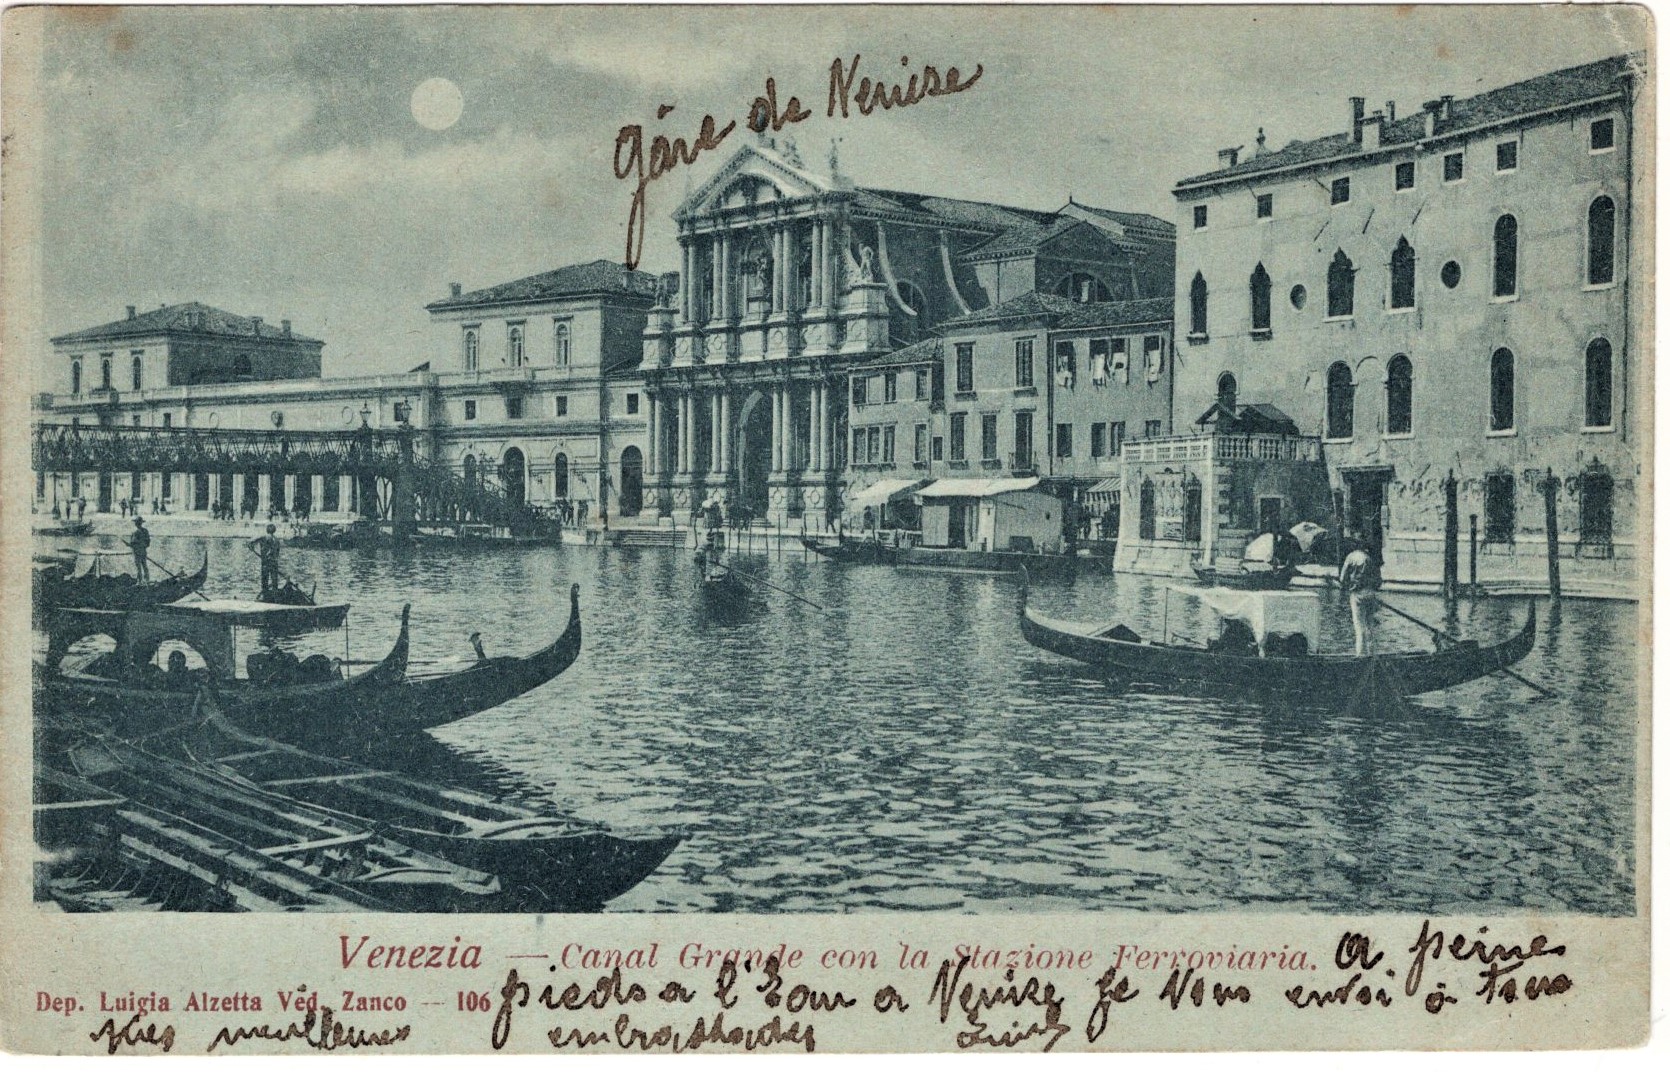 gâre de Venise
Venezia — Canal Grande con la Stazione Ferroviaria.
a peine
Dep. Luigia Alzetta Ved. Zanco — 106
pieds a l'Eau a Venise je Vous envoi à tous
mes meilleures embrassades Louis